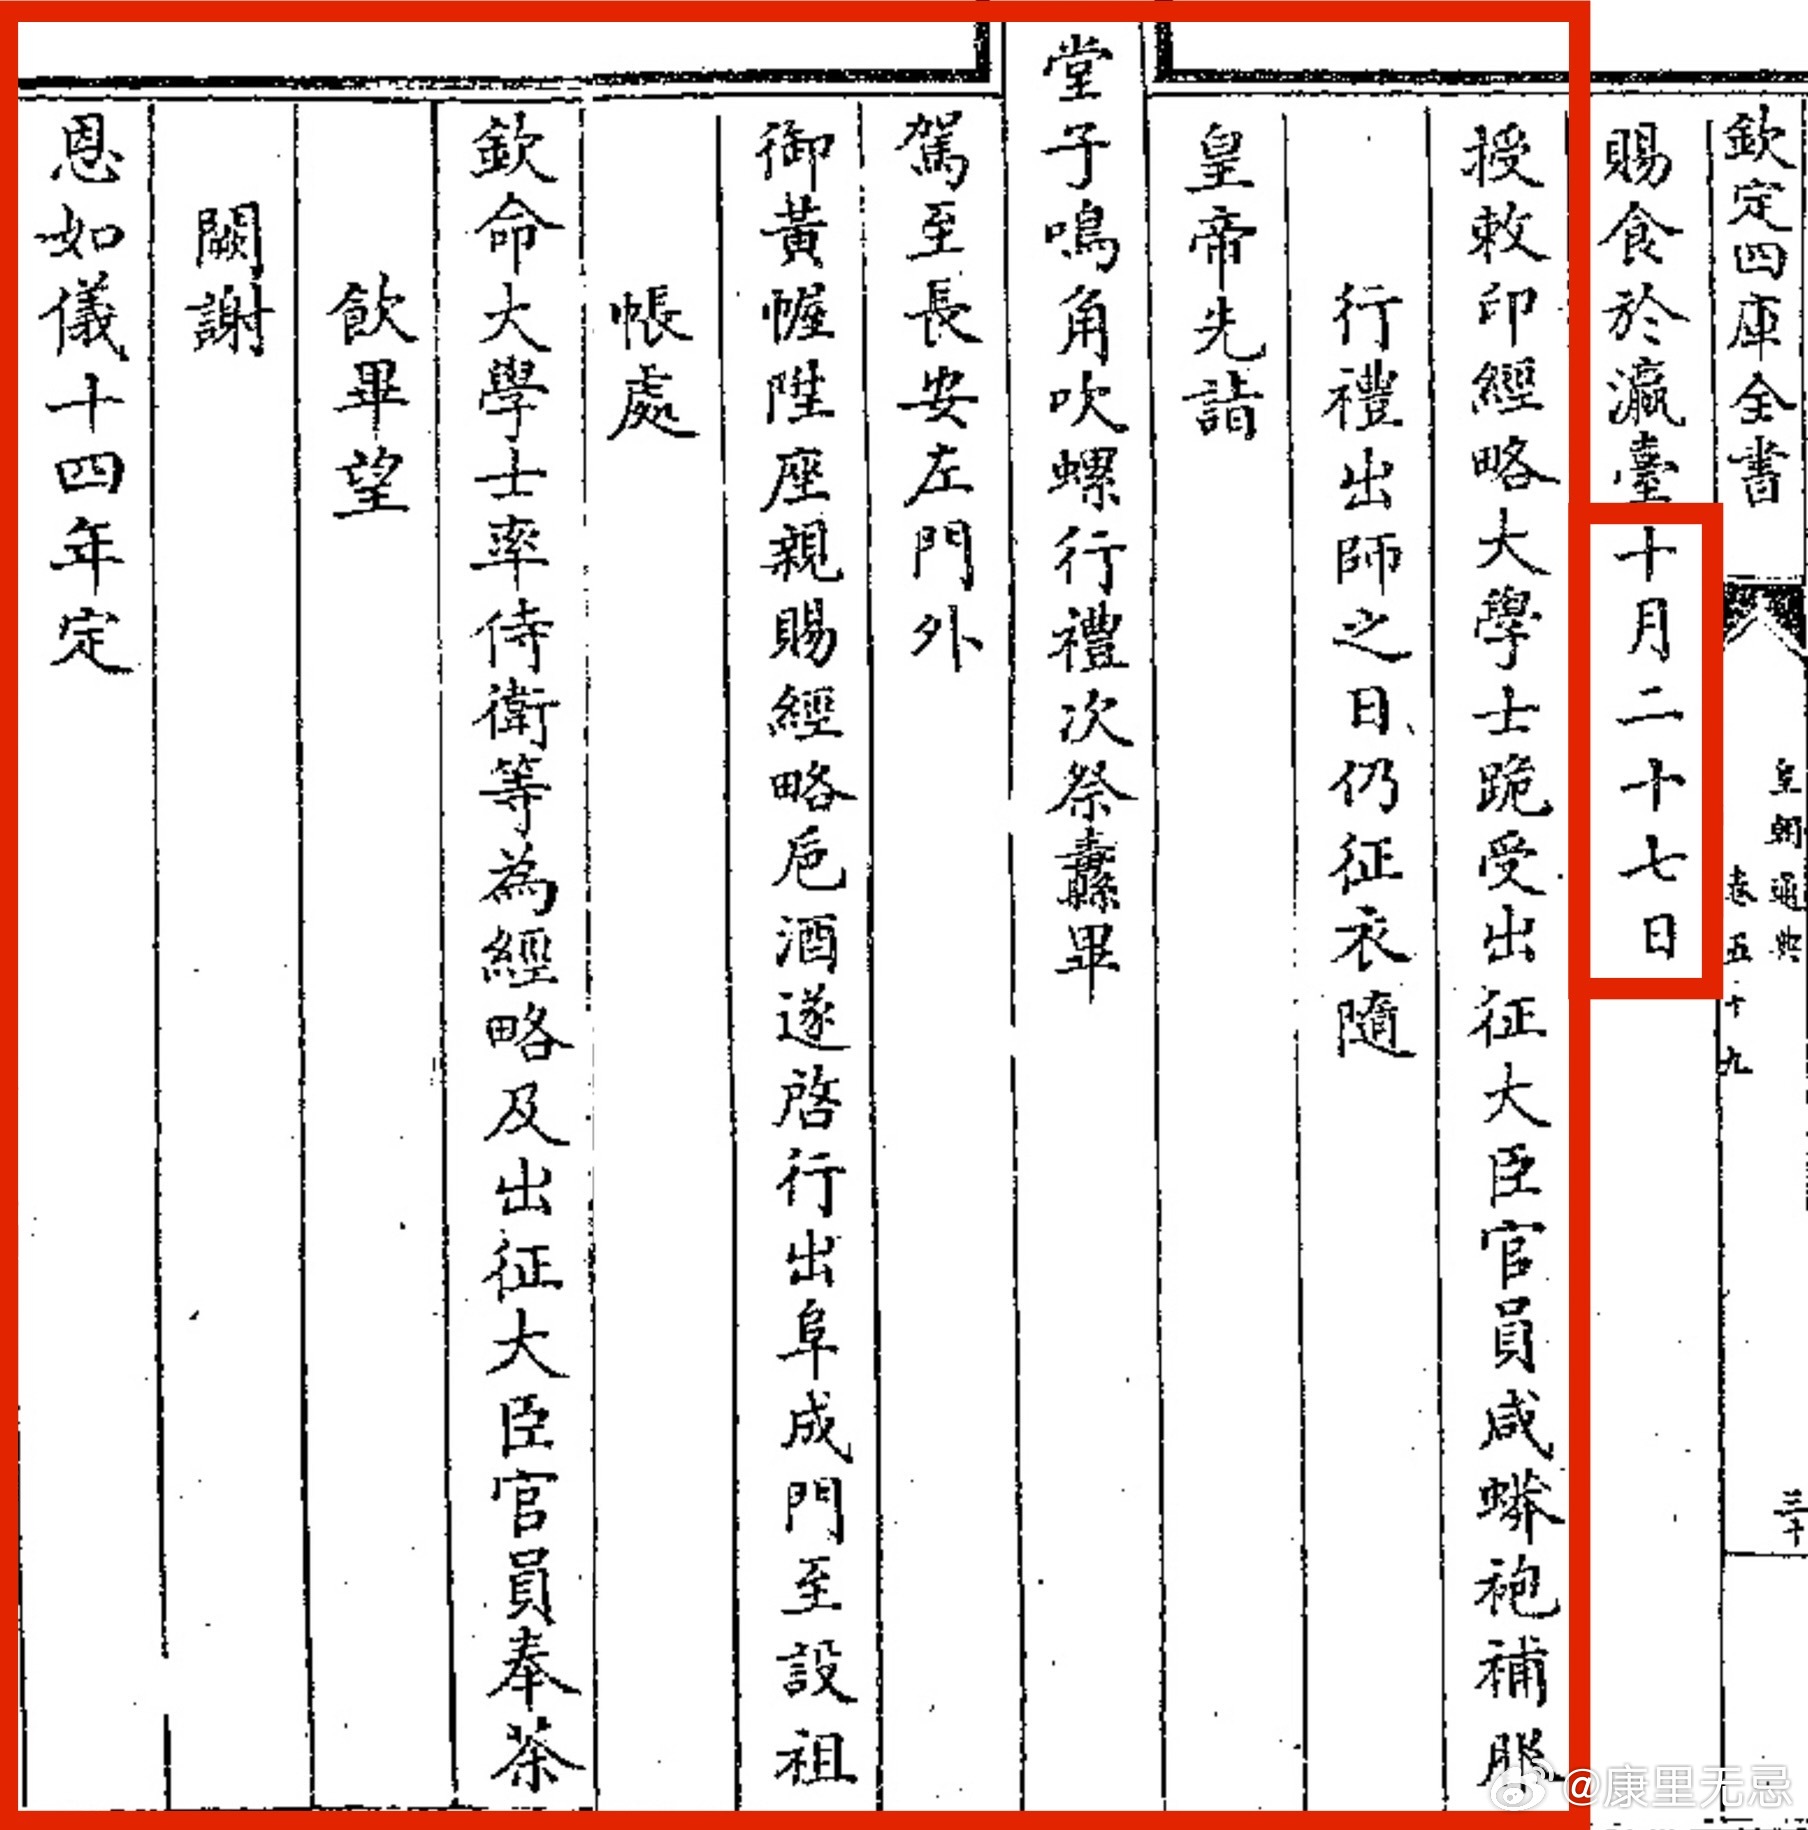 欽定四庫全書
皇朝通典
卷五十九
三十
賜食於瀛臺十月二十七日
授敕印經略大學士跪受出征大臣官員咸蟒袍補服
行禮出師之日仍征衣隨
皇帝先詣
堂子鳴角吹螺行禮次祭纛畢
駕至長安左門外
御黃幄陞座親賜經略卮酒遂啓行出阜成門至設祖
帳處
欽命大學士率侍衛等為經略及出征大臣官員奉茶
飲畢望
闕謝
恩如儀十四年定
@康里无忌